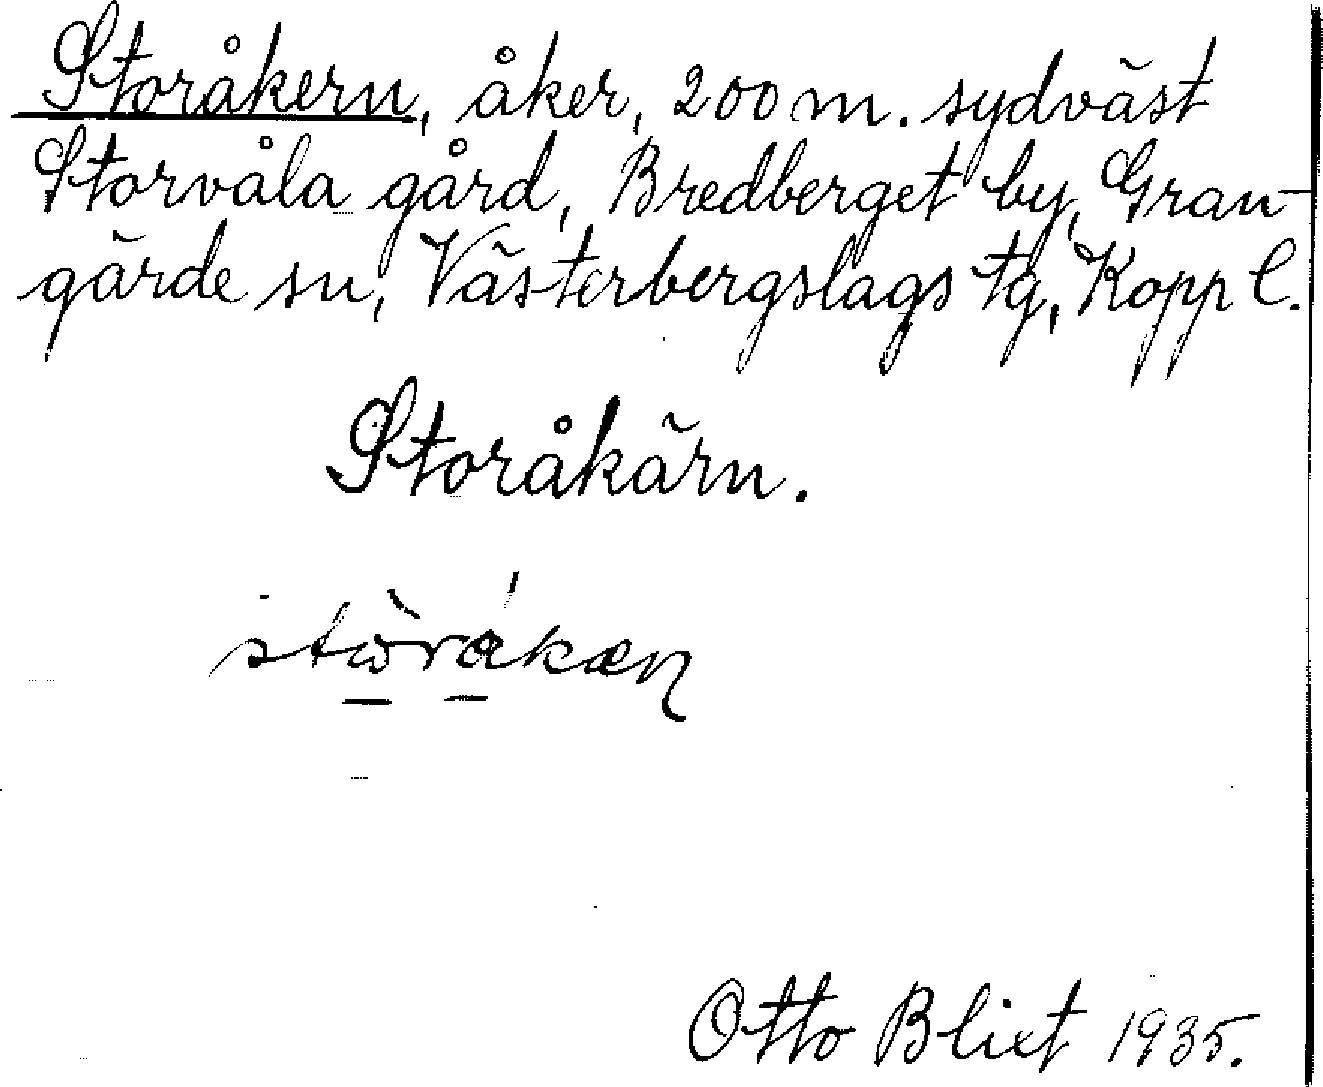 Storåkern, åker, 200 m. sydväst
Storvåla gård, Bredberget by, Gran-
gärde sn, Västerbergslags tg, Kopp l.
Storåkärn.
Otto Blixt 1935.